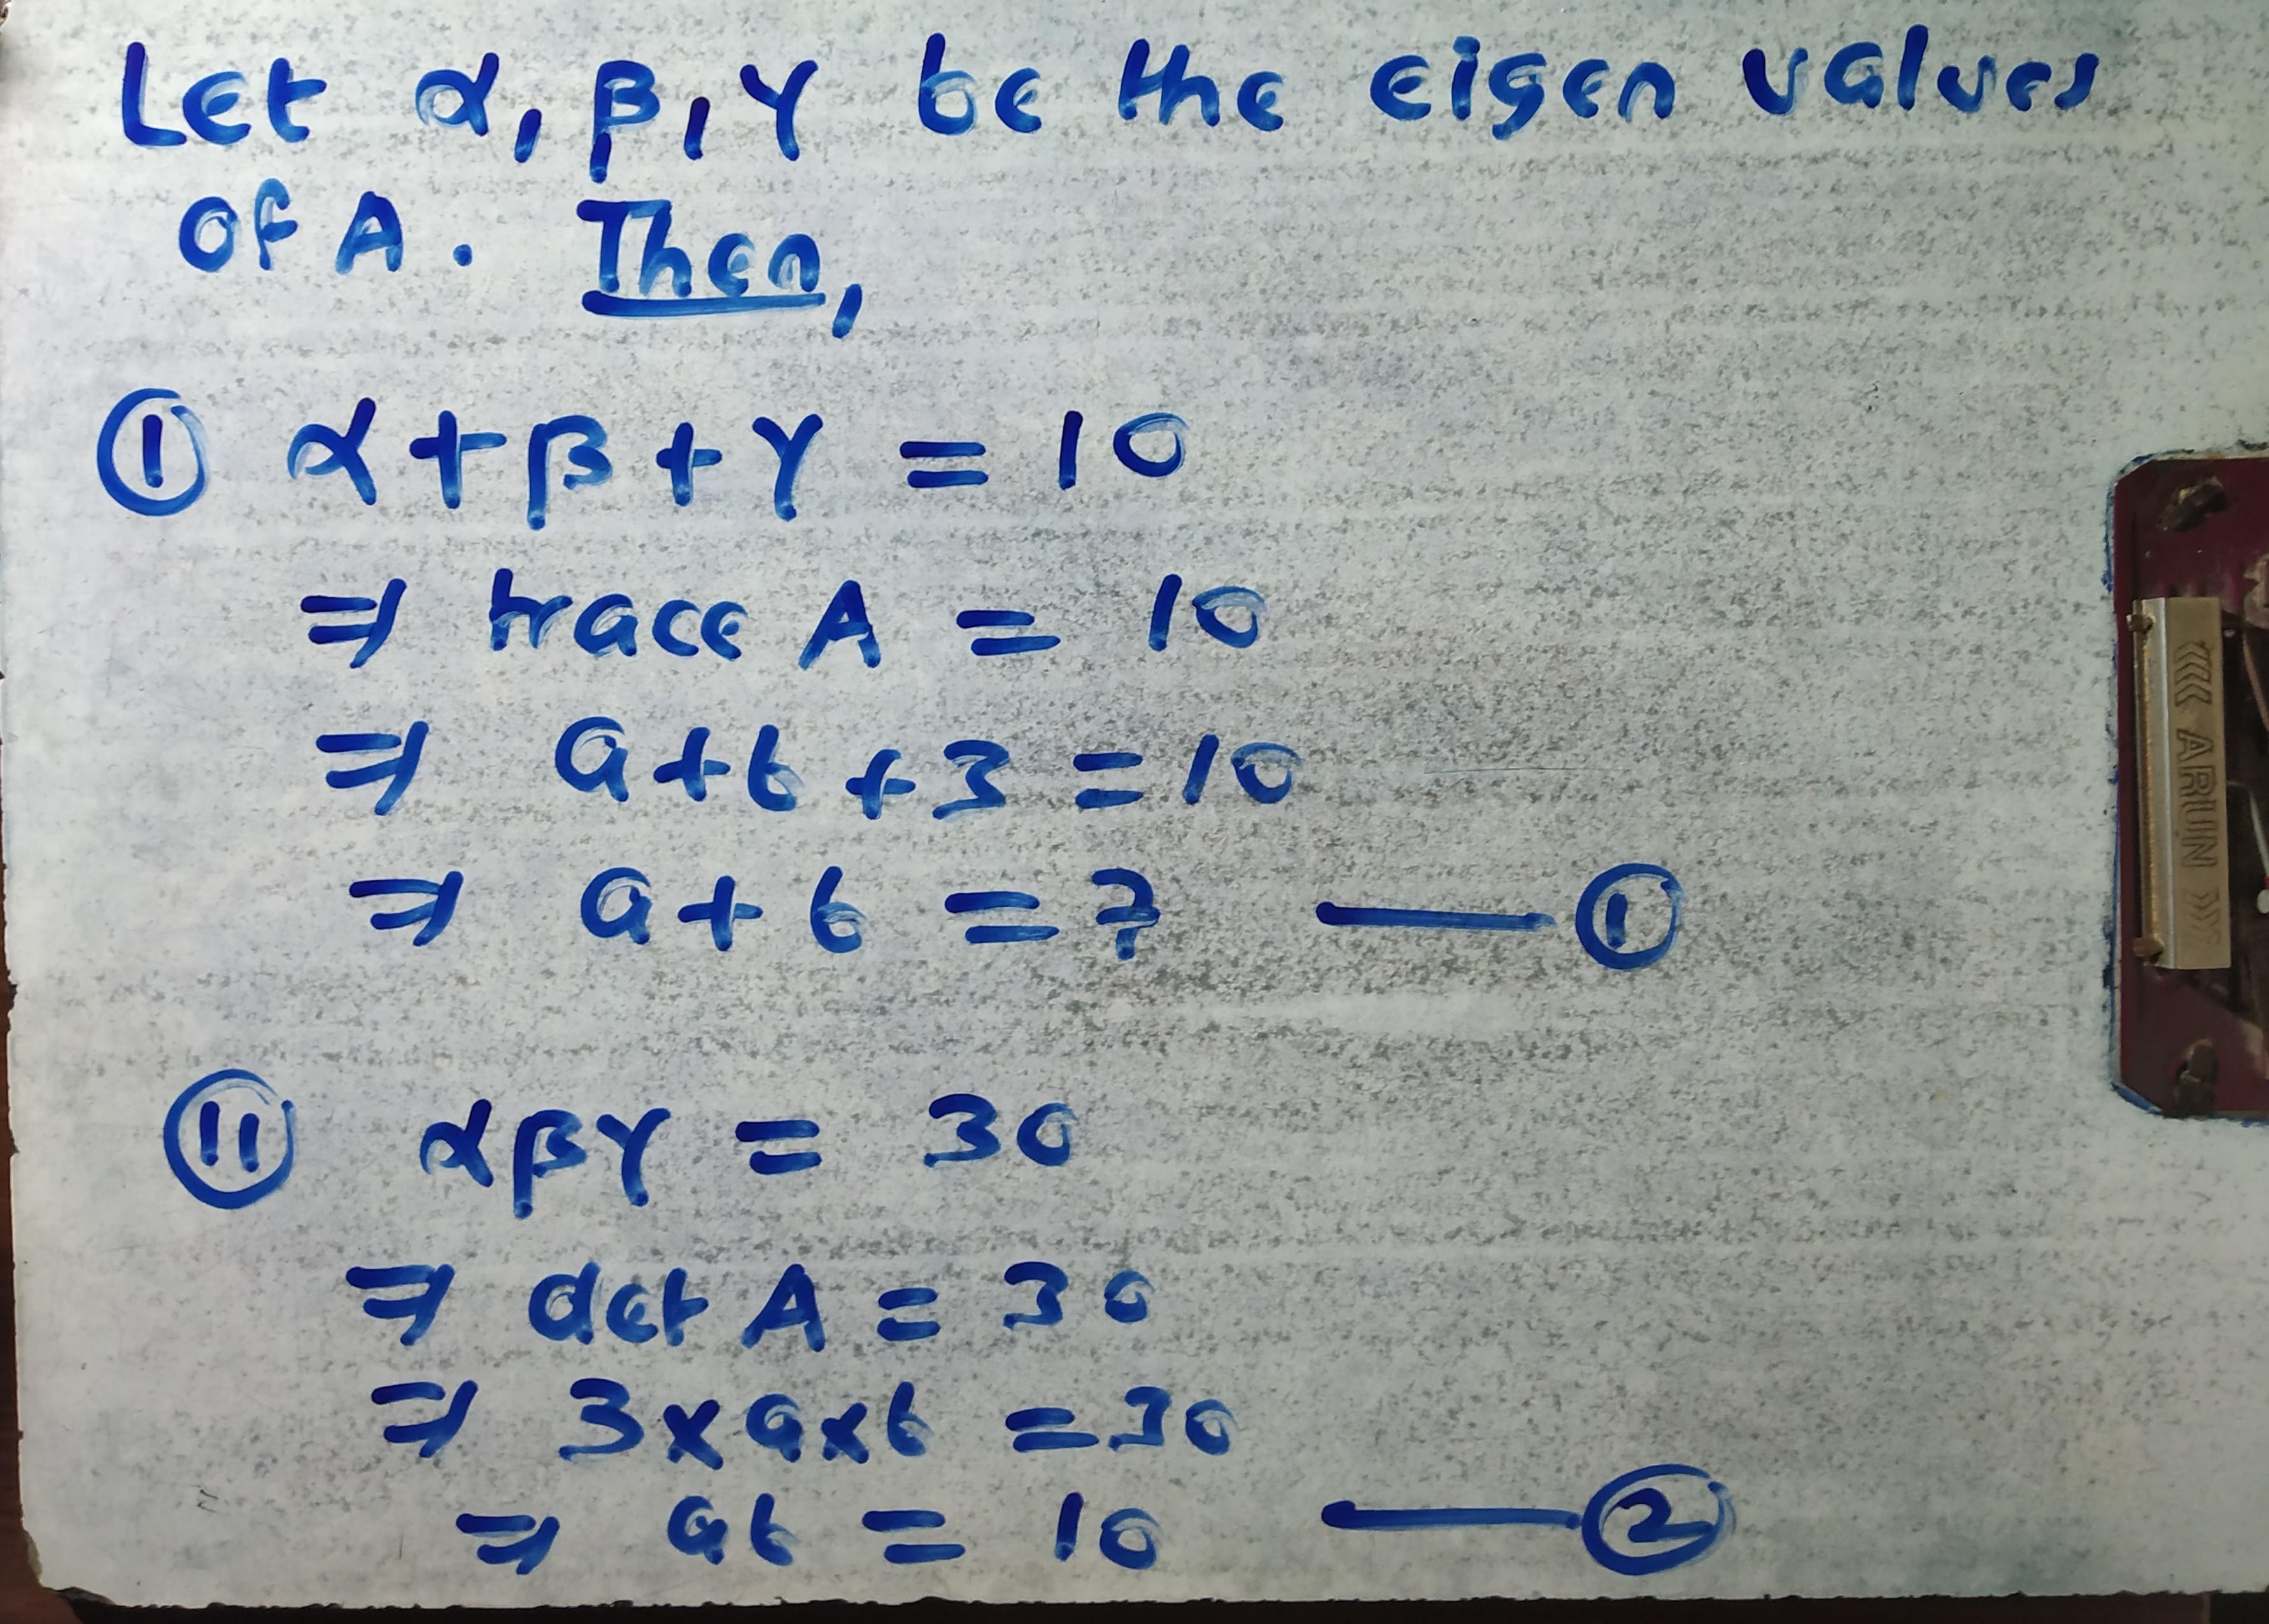 Let α, β, γ be the eigen values
of A. Then,
① α + β + γ = 10
⇒ trace A = 10
⇒ a + b + 3 = 10
⇒ a + b = 7 — ①
⑪ αβγ = 30
⇒ det A = 30
⇒ 3 × a × b = 30
⇒ ab = 10 — ②
<<<< ARUN >>>>